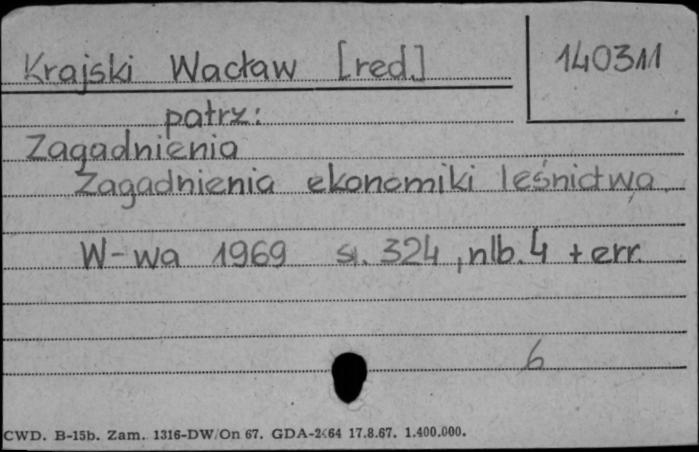 Krajski Wacław [red.]
140311
patrz:
Zagadnienia
Zagadnienia ekonomiki leśnictwa.
W-wa 1969 s. 324, nlb. 4 + err.
6
CWD. B-15b. Zam. 1316-DW/On 67. GDA-2464 17.8.67. 1.400.000.